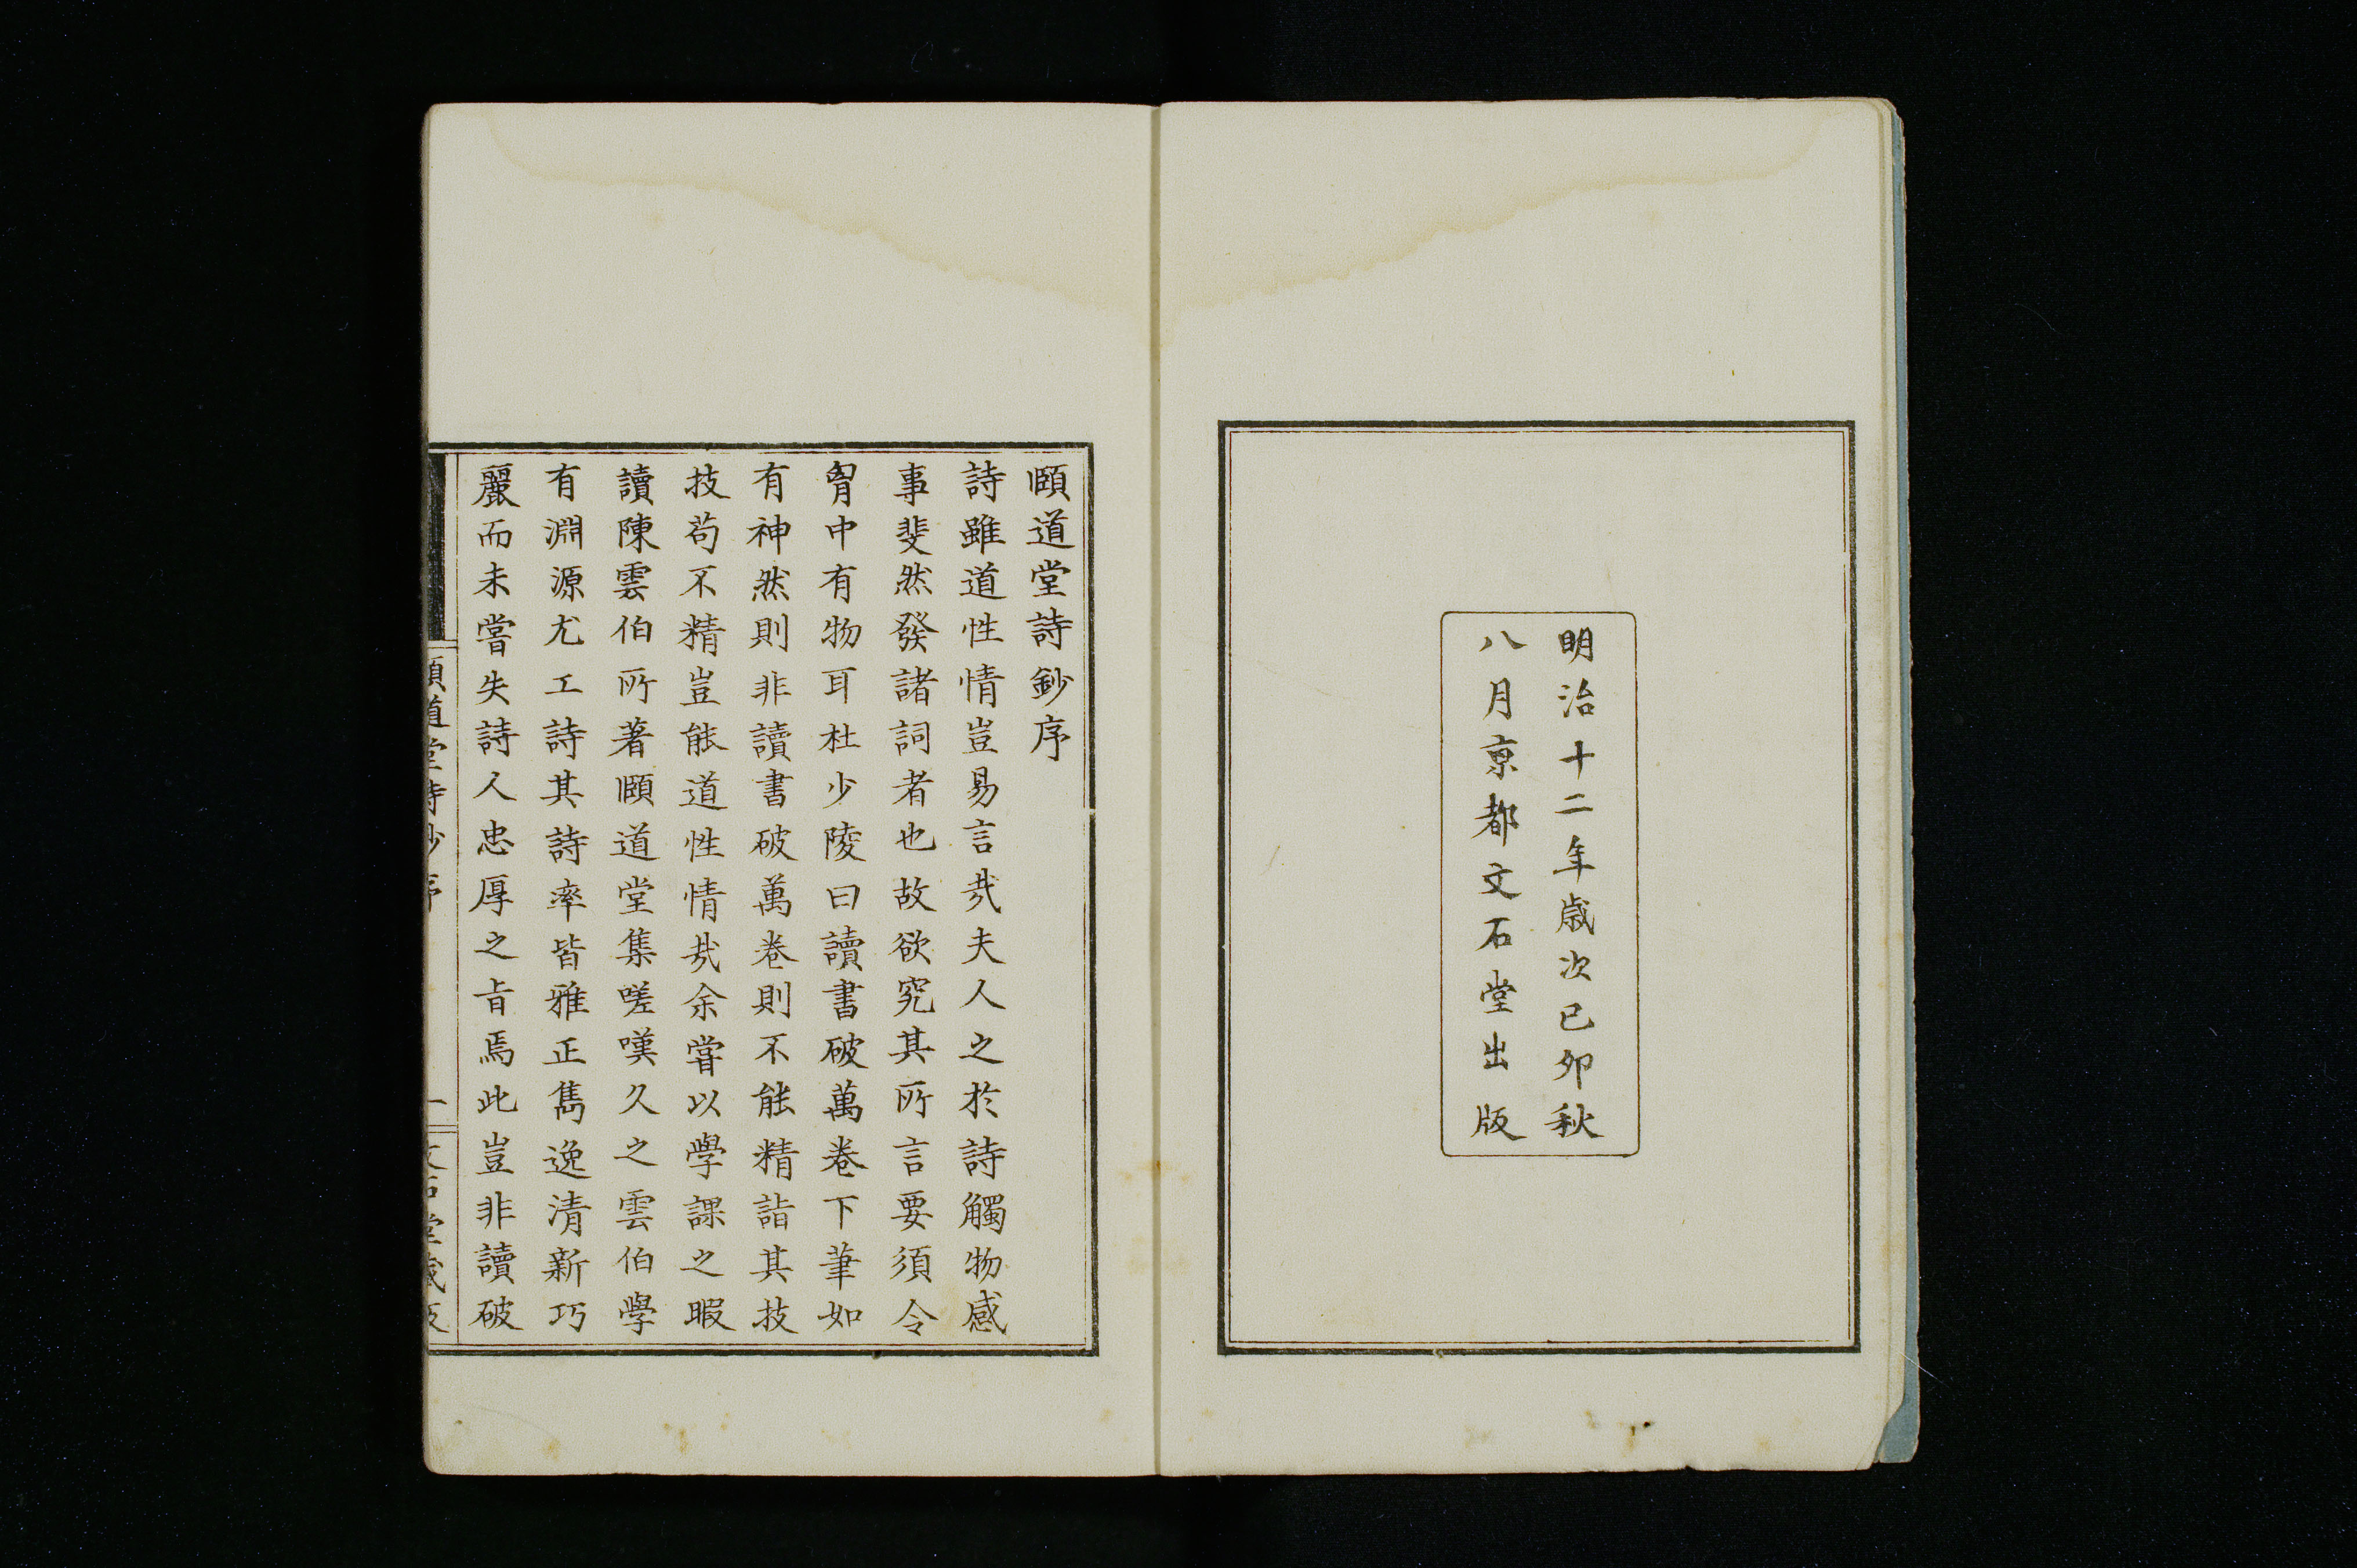 明治十二年歳次己卯秋
八月京都文石堂出版
頤道堂詩鈔序
詩雖道性情豈易言哉夫人之於詩觸物感
事斐然發諸詞者也故欲究其所言要須令
胷中有物耳杜少陵曰讀書破萬卷下筆如
有神然則非讀書破萬卷則不能精詣其技
技苟不精豈能道性情哉余甞以學課之暇
讀陳雲伯所著頤道堂集嗟嘆久之雲伯學
有淵源尤工詩其詩率皆雅正雋逸清新巧
麗而未嘗失詩人忠厚之旨焉此豈非讀破
頤道堂詩鈔序 一 文石堂蔵版